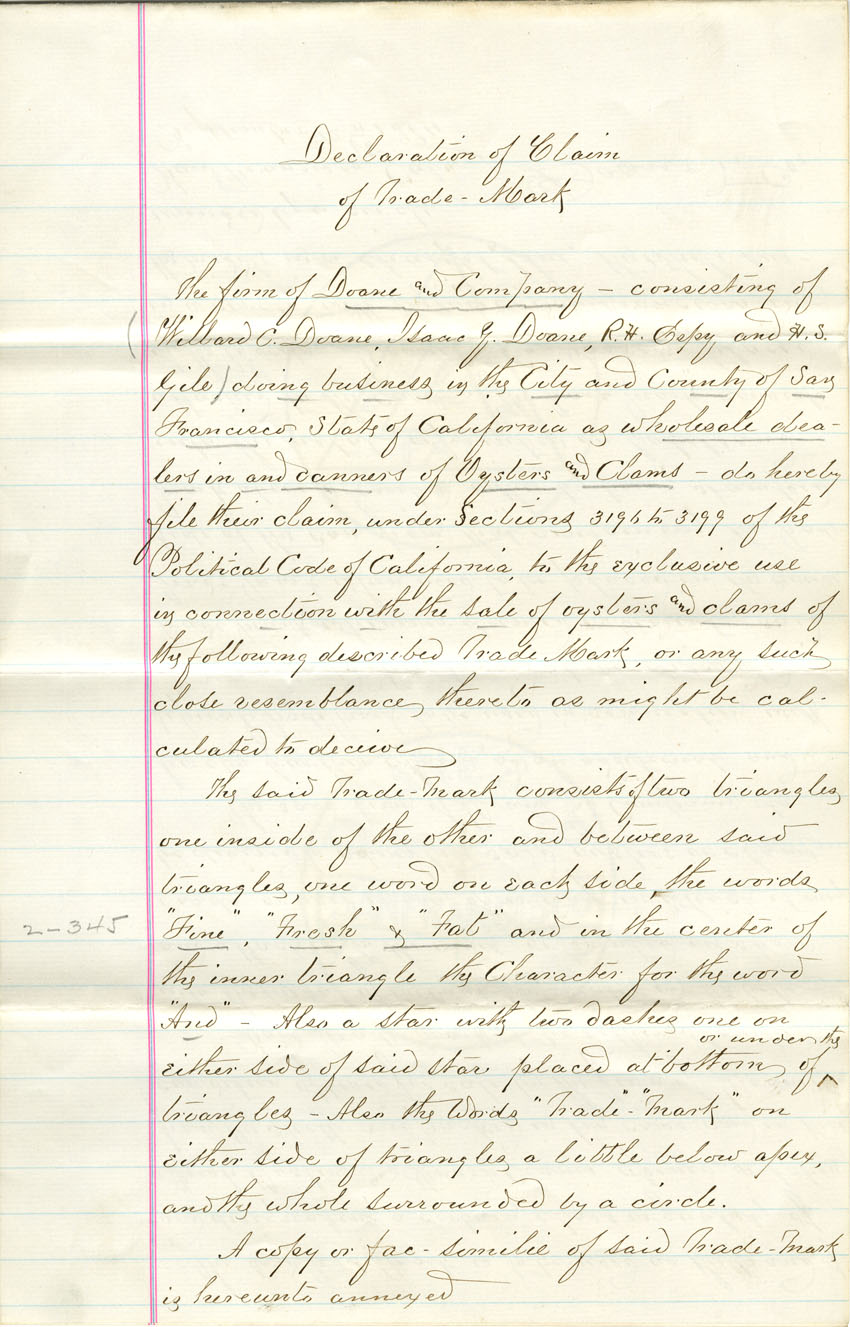 Declaration of Claim
of Trade-Mark
The firm of Doane and Company – consisting of
(Willard C. Doane, Isaac Y. Doane, R.H. Espy and H.S.
Gile) doing business in the City and County of San
Francisco, State of California as wholesale dea-
lers in and canners of Oysters and Clams – do hereby
file their claim, under Sections 3196 to 3199 of the
Political Code of California, to the exclusive use
in connection with the sale of oysters and clams of
the following described Trade Mark, or any such
close resemblance thereto as might be cal-
culated to decive
The said Trade-Mark consists of two triangles
one inside of the other and between said
triangles, one word on each side, the words
2-345 "Fine", "Fresh" & "Fat" and in the center of
the inner triangle the Character for the word
"And" – Also a star with two dashes one on
either side of said star placed at bottom or under of the
triangles – Also the Words "Trade"-"Mark" on
either side of triangles a little below apex,
and the whole surrounded by a circle.
A copy or fac-similie of said Trade-Mark
is hereunto annexed